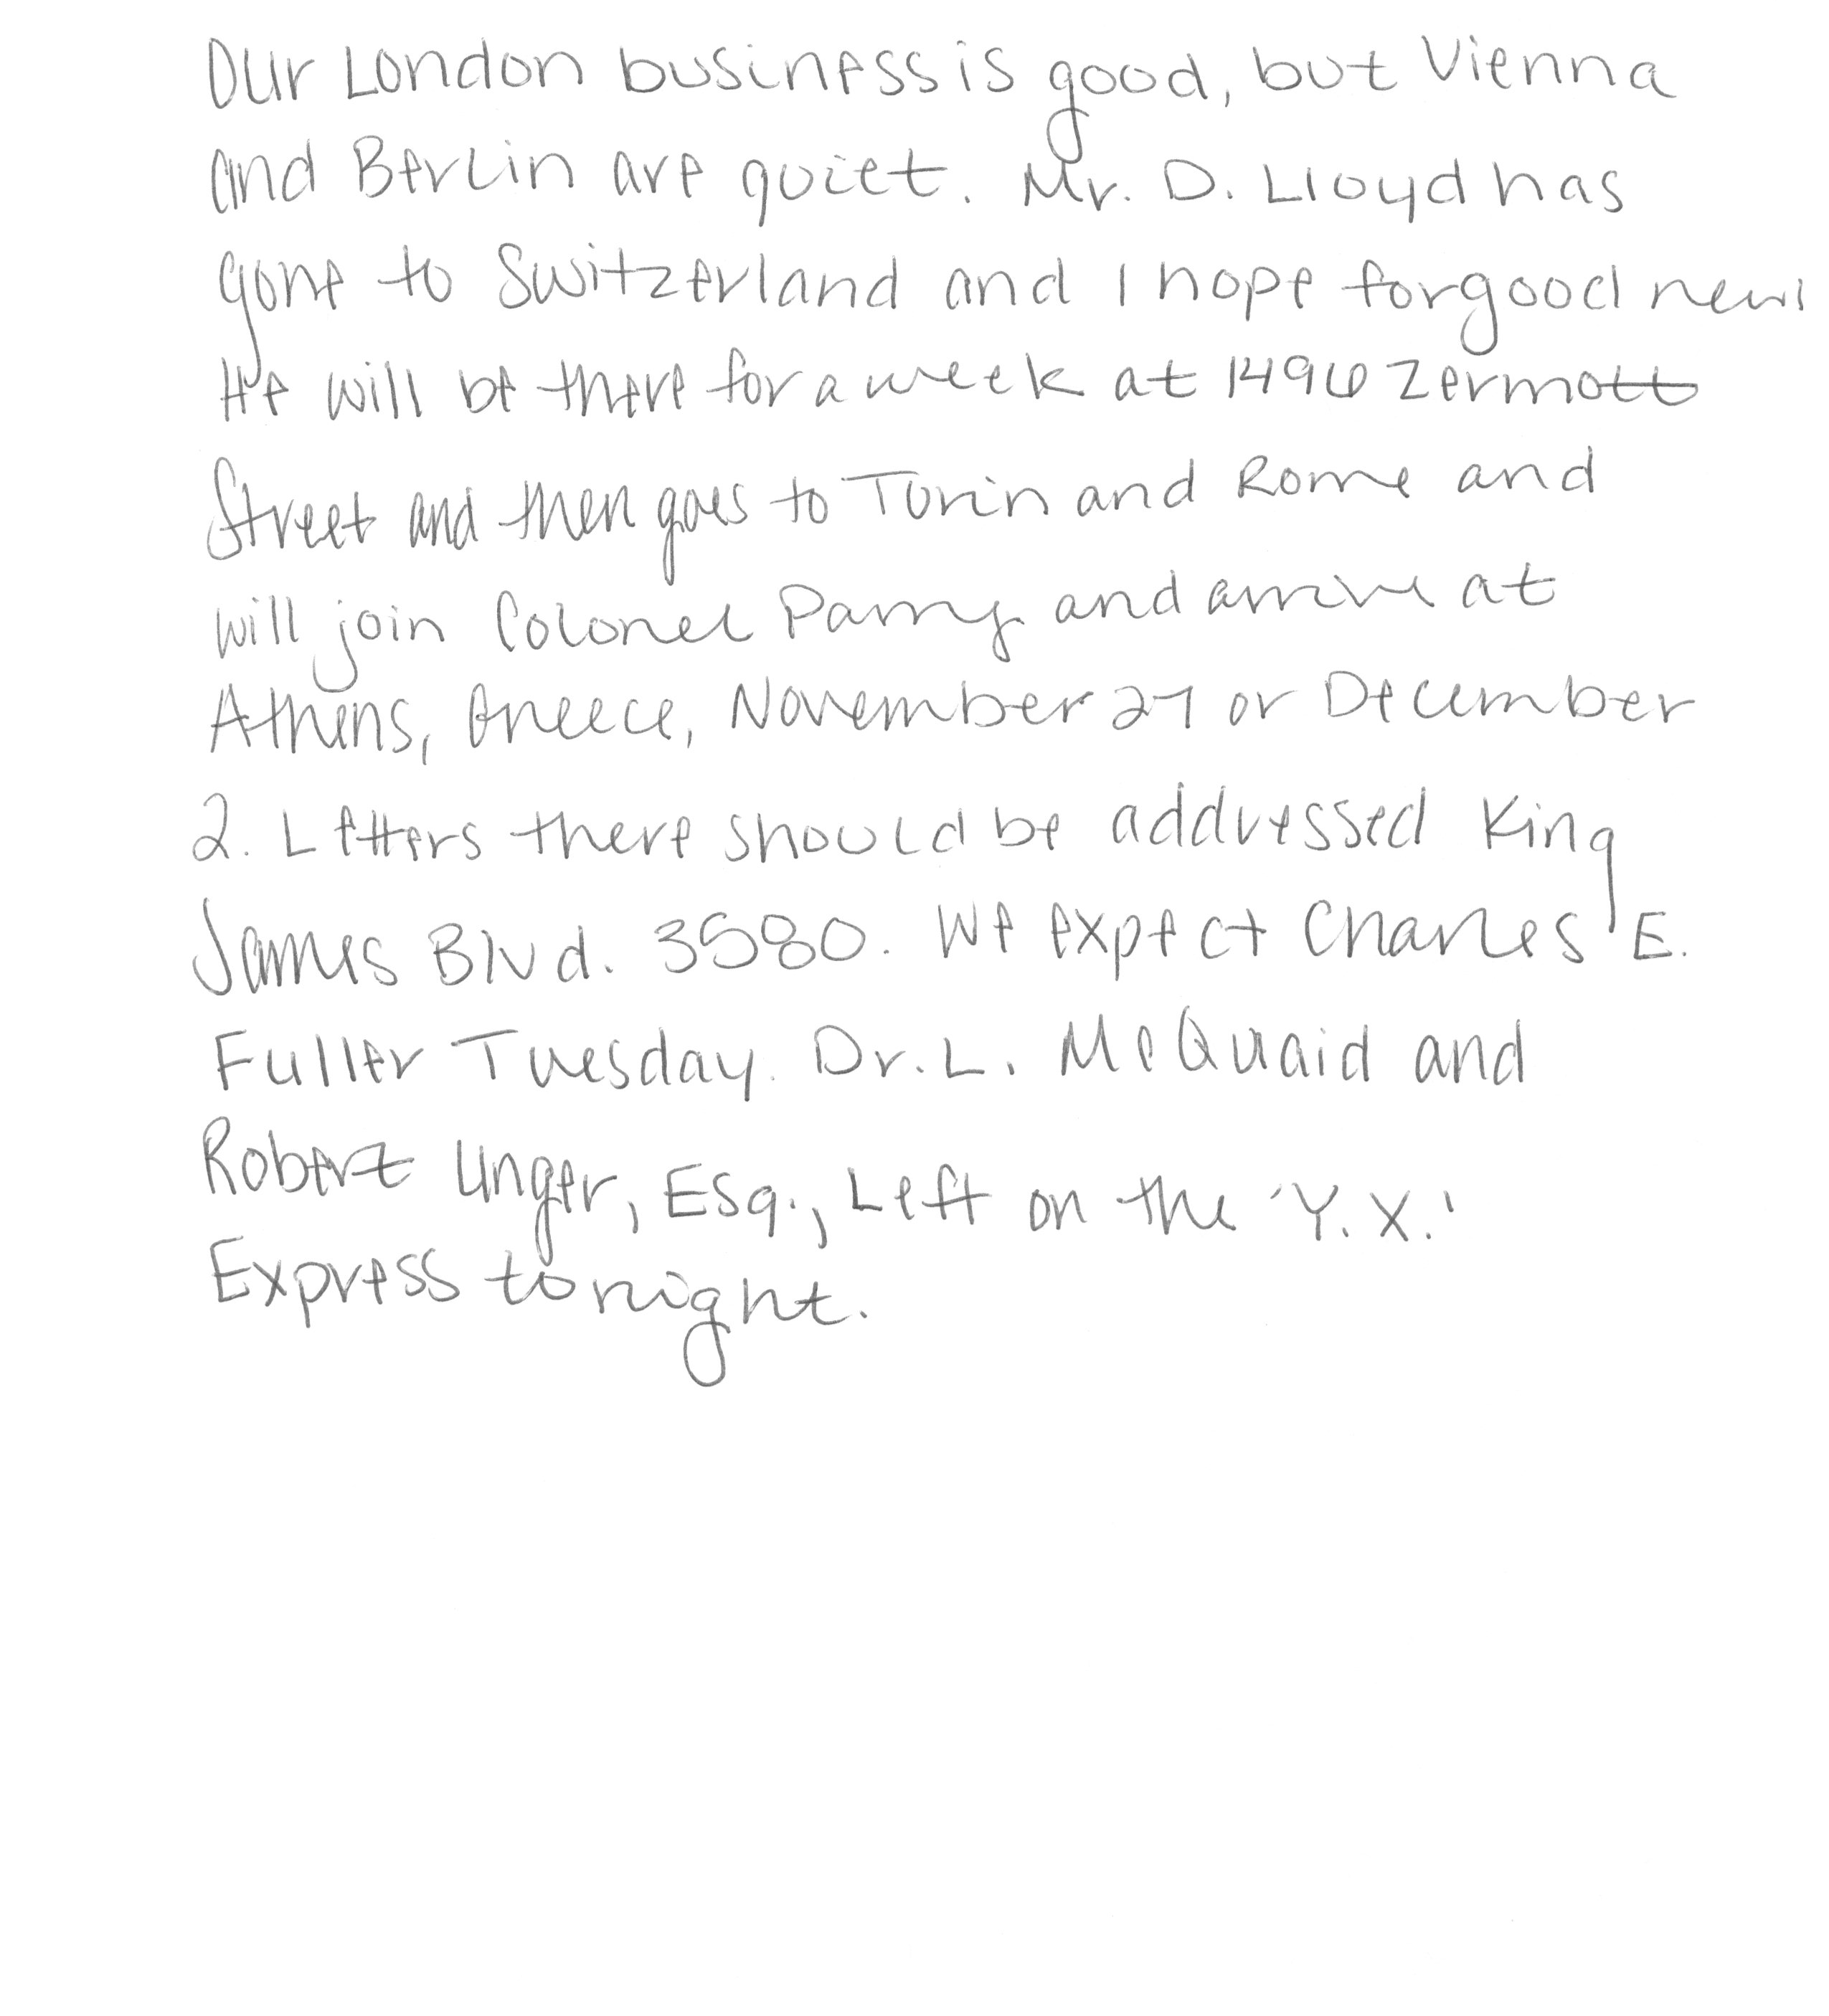 Our London business is good, but Vienna
and Berlin are quiet. Mr. D. Lloyd has
gone to Switzerland and I hope for good news
He will be there for a week at 1496 Zermott
Street and then goes to Turin and Rome and
will join Colonel Parry and arrive at
Athens, Greece, November 27 or December
2. Letters there should be addressed King
James Blvd. 3580. We expect Charles E.
Fuller Tuesday. Dr. L. McQuaid and
Robert Unger, Esq., Left on the 'Y.X.'
Express tonight.